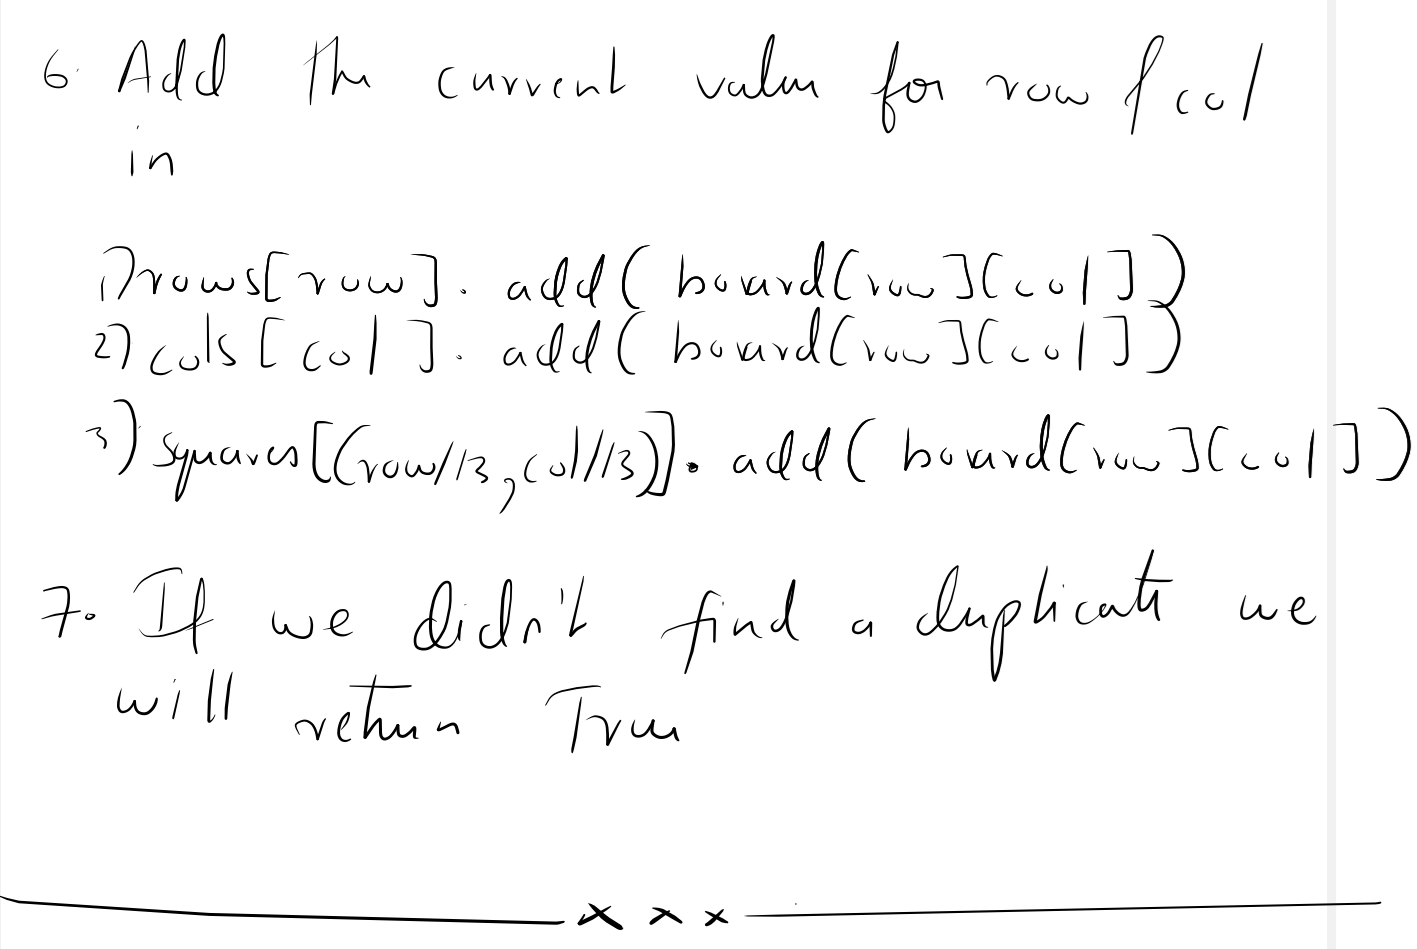 6. Add the current value for row & col
in
1) rows[row]. add( board[row][col])
2) cols[col]. add( board[row][col])
3) squares[(row//3, col//3)]. add( board[row][col])
7. If we didn't find a duplicate we
will return True
x x x